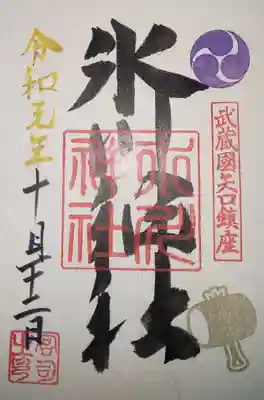 武蔵國矢口鎮座
氷川神社
氷川神社
令和元年十月十二日